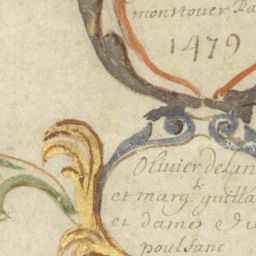 monstouer Pa
1479
Olivier delan
et marg guilla
et dame
poulsanc